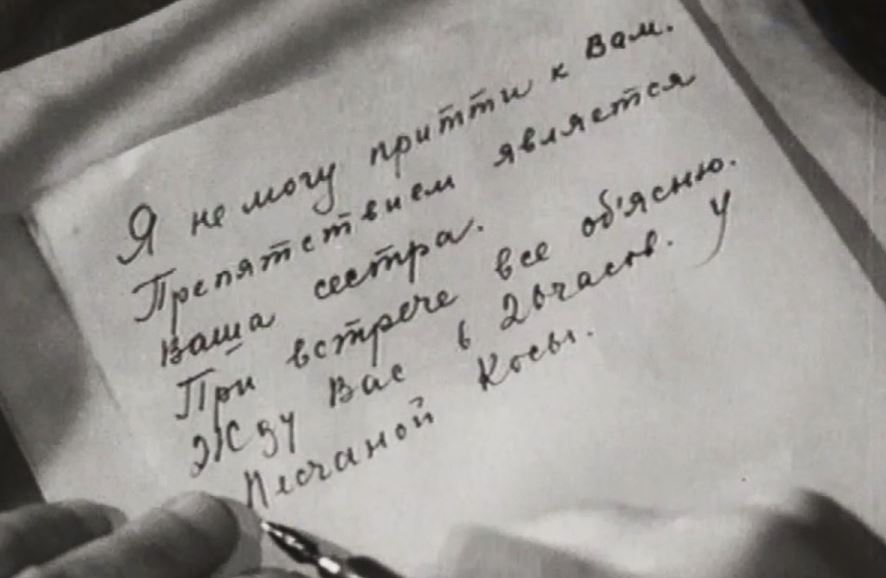 Я не могу притти к Вам.
Препятствием является
Ваша сестра.
При встрече все об'ясню.
Жду Вас в 20 часов. У
Песчаной Косы.